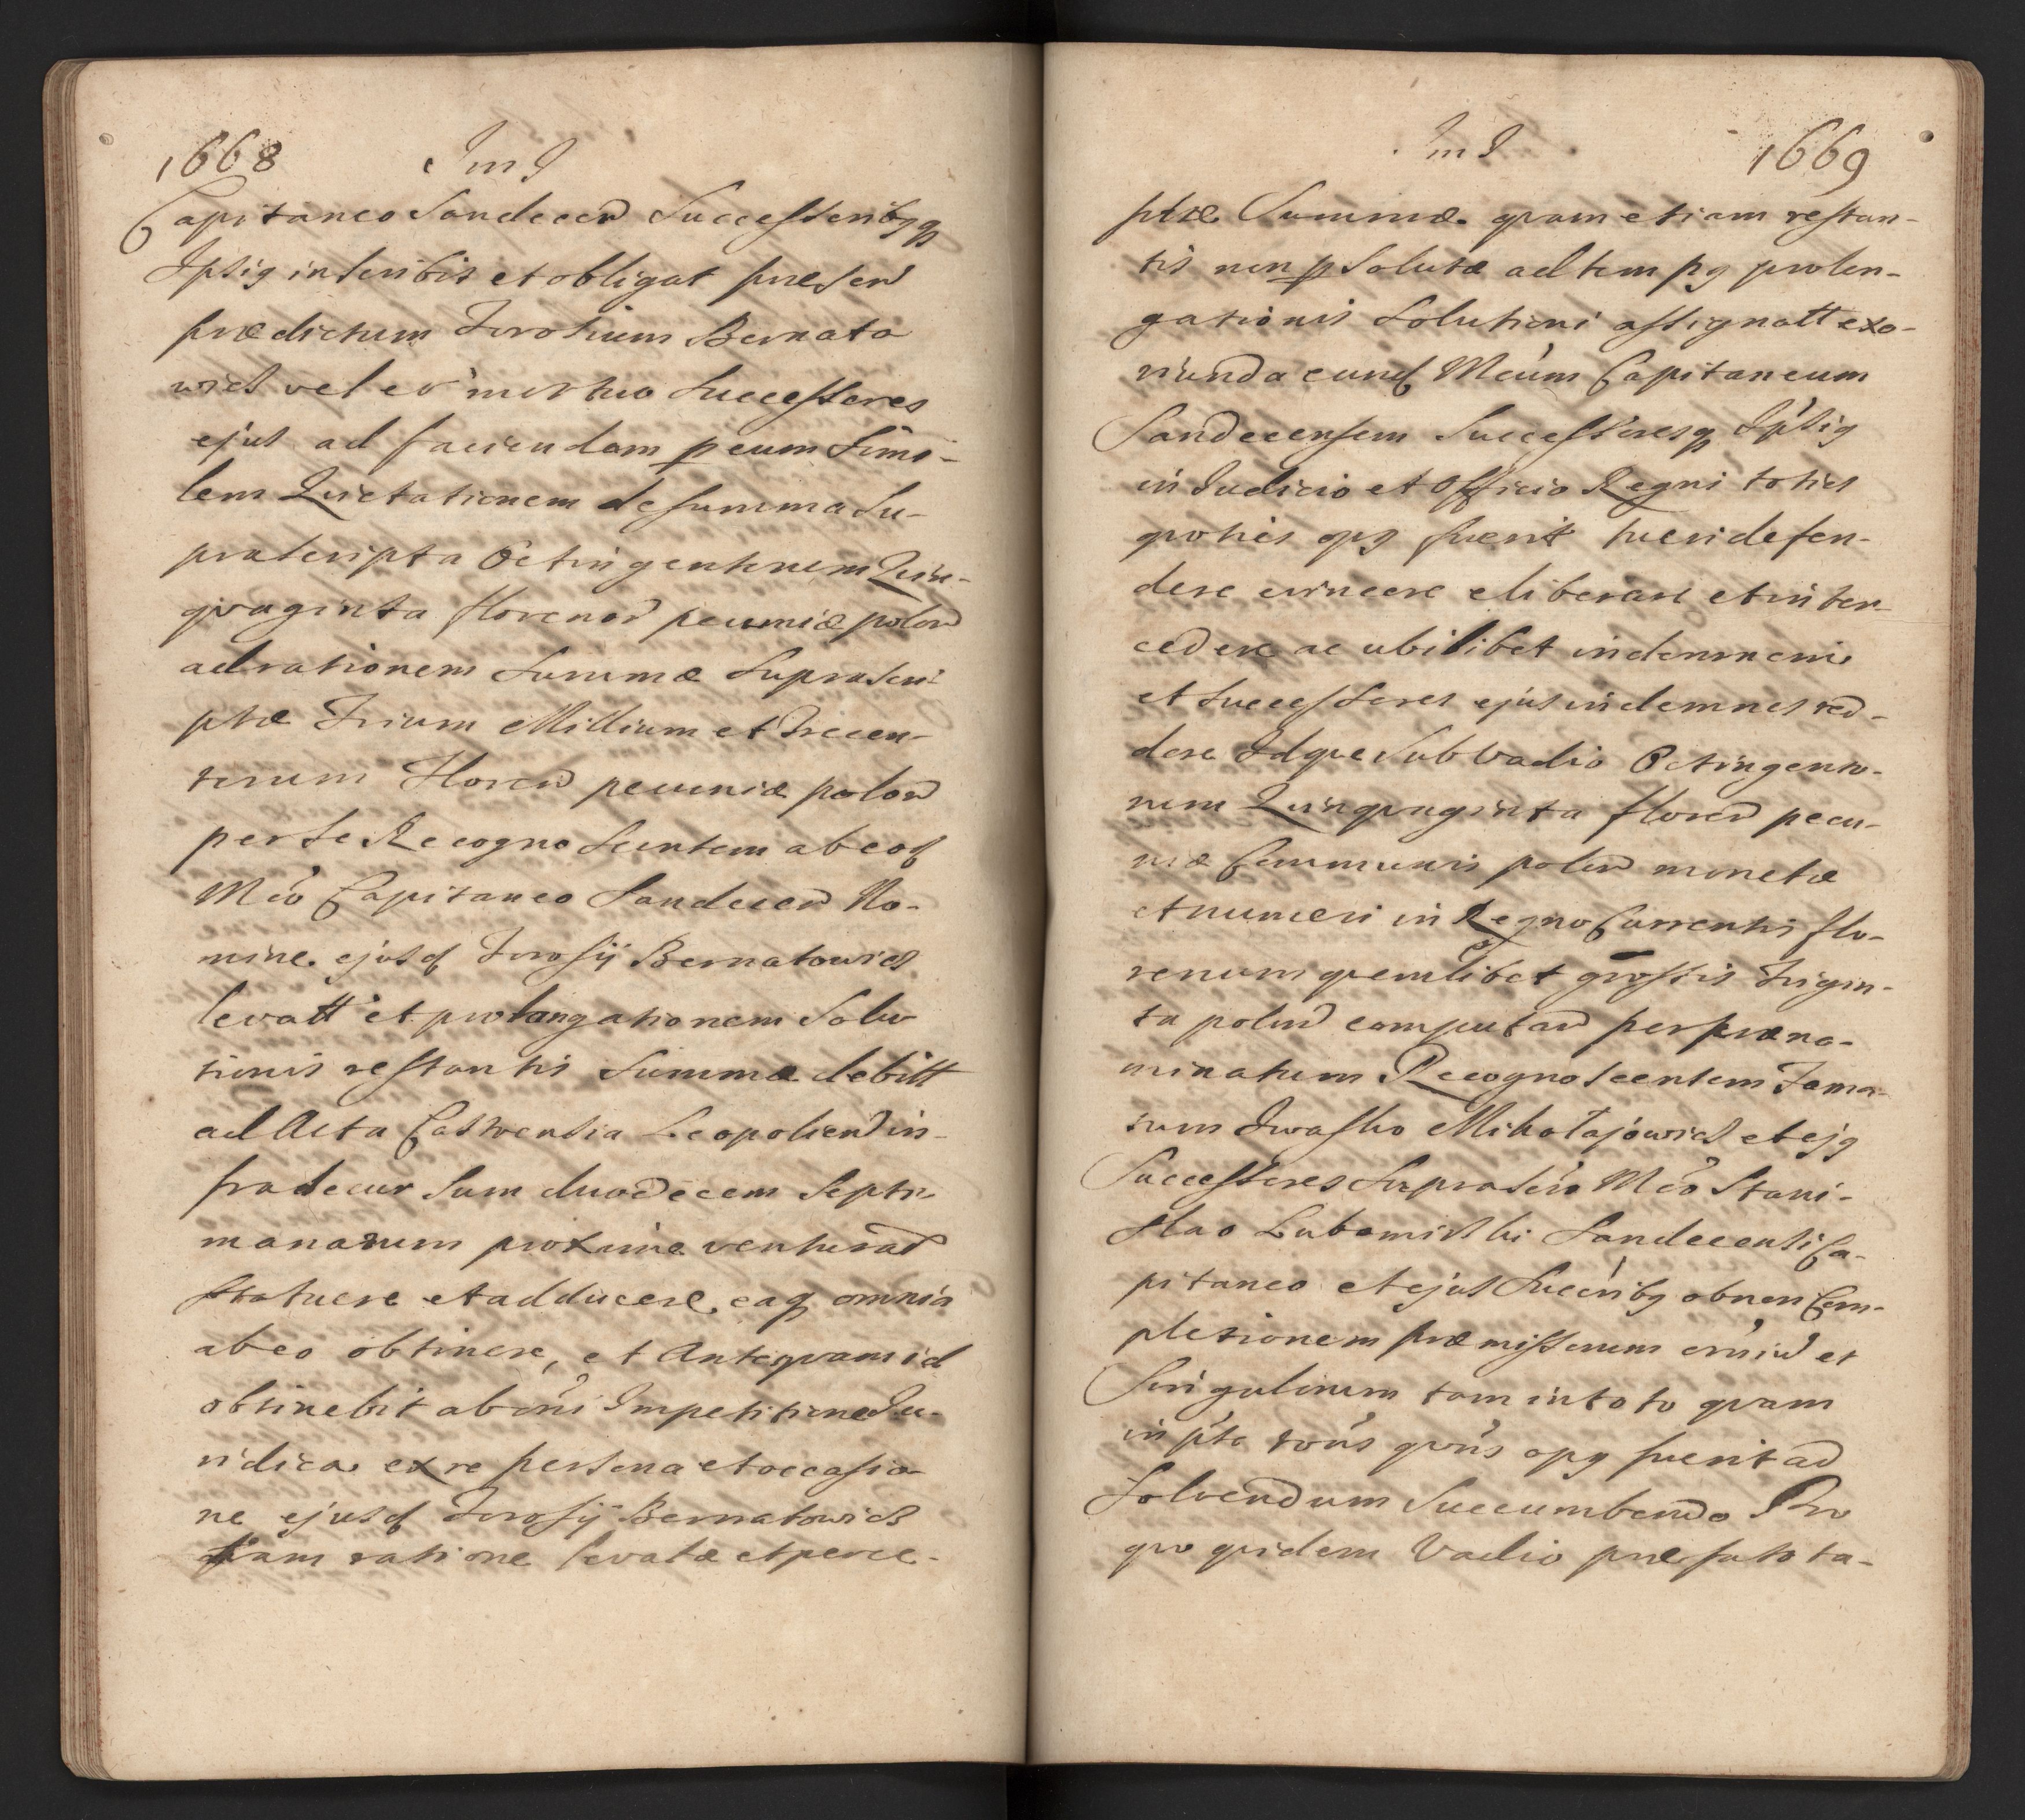 1668 Im I
Capitaneo Sandecen Successoribqꝫ
Ipsiq inscribit et obligat præsen
prædictum Iwosium Bernato
wich vel eo mortuo Successores
ejus ad faciendam p eum Simi-
lem Quietationem de summa Su-
prascripta Octingentorum Quin-
quaginta florenor pecuniæ polon
ad rationem Summæ Suprascri
ptæ Trium Millium et Trecen-
torum Floren pecuniæ polon
per se Recognoscentem ab eod
Mco Capitaneo Sandecen No-
mine ejusd Iwosij Bernatowich
levatt et prolongationem Solu
tionis restantis Summæ debitt
ad Acta Castrensia Leopolien in-
fra decursum duodecem Septi
manarum proxime venturar
statuere et adducere, eaq omnia
ab eo obtinere, et Antequam id
obtinebit ab omi Impetitione Ju-
ridica ex re persona et occasio-
ne ejusd Iwosij Bernatowich
tam ratione levatæ et perce-
Im I 1669
ptæ Summæ quam etiam restan-
tis non p Solutæ ad temp9 prolon-
gationis Solutioni assignatt exo-
riunda eund Mcum Capitaneum
Sandecensem Successoresq Ipsi9
in Judicio et Officio Regni toties
quoties op9 fuerit tueri defen-
dere evincere eliberare et inter-
cedere ac ubilibet indemnem
et Successores ejus indemnes red-
dere Idque Sub Vadio Octingento-
rum Quinquaginta floren pecu-
niæ Communis polon monetæ
et numeri in Regno Currentis flo-
renum quemlibet grossis Trigin-
ta polon computan per præno-
minatum Recognoscentem Fama-
tum Iwasko Mikołajowich et ej9
Successores Suprascro Mco Stani-
slao Lubomirski Sandecensi Ca-
pitaneo et ejus Succrib9 ob non Com-
pletionem præmissorum omiu et
Singulorum tam in toto quam
in pte toties quoties op9 fuerit ad
Solvendum Succumbendo Pro
quo quidem Vadio præfato ta-